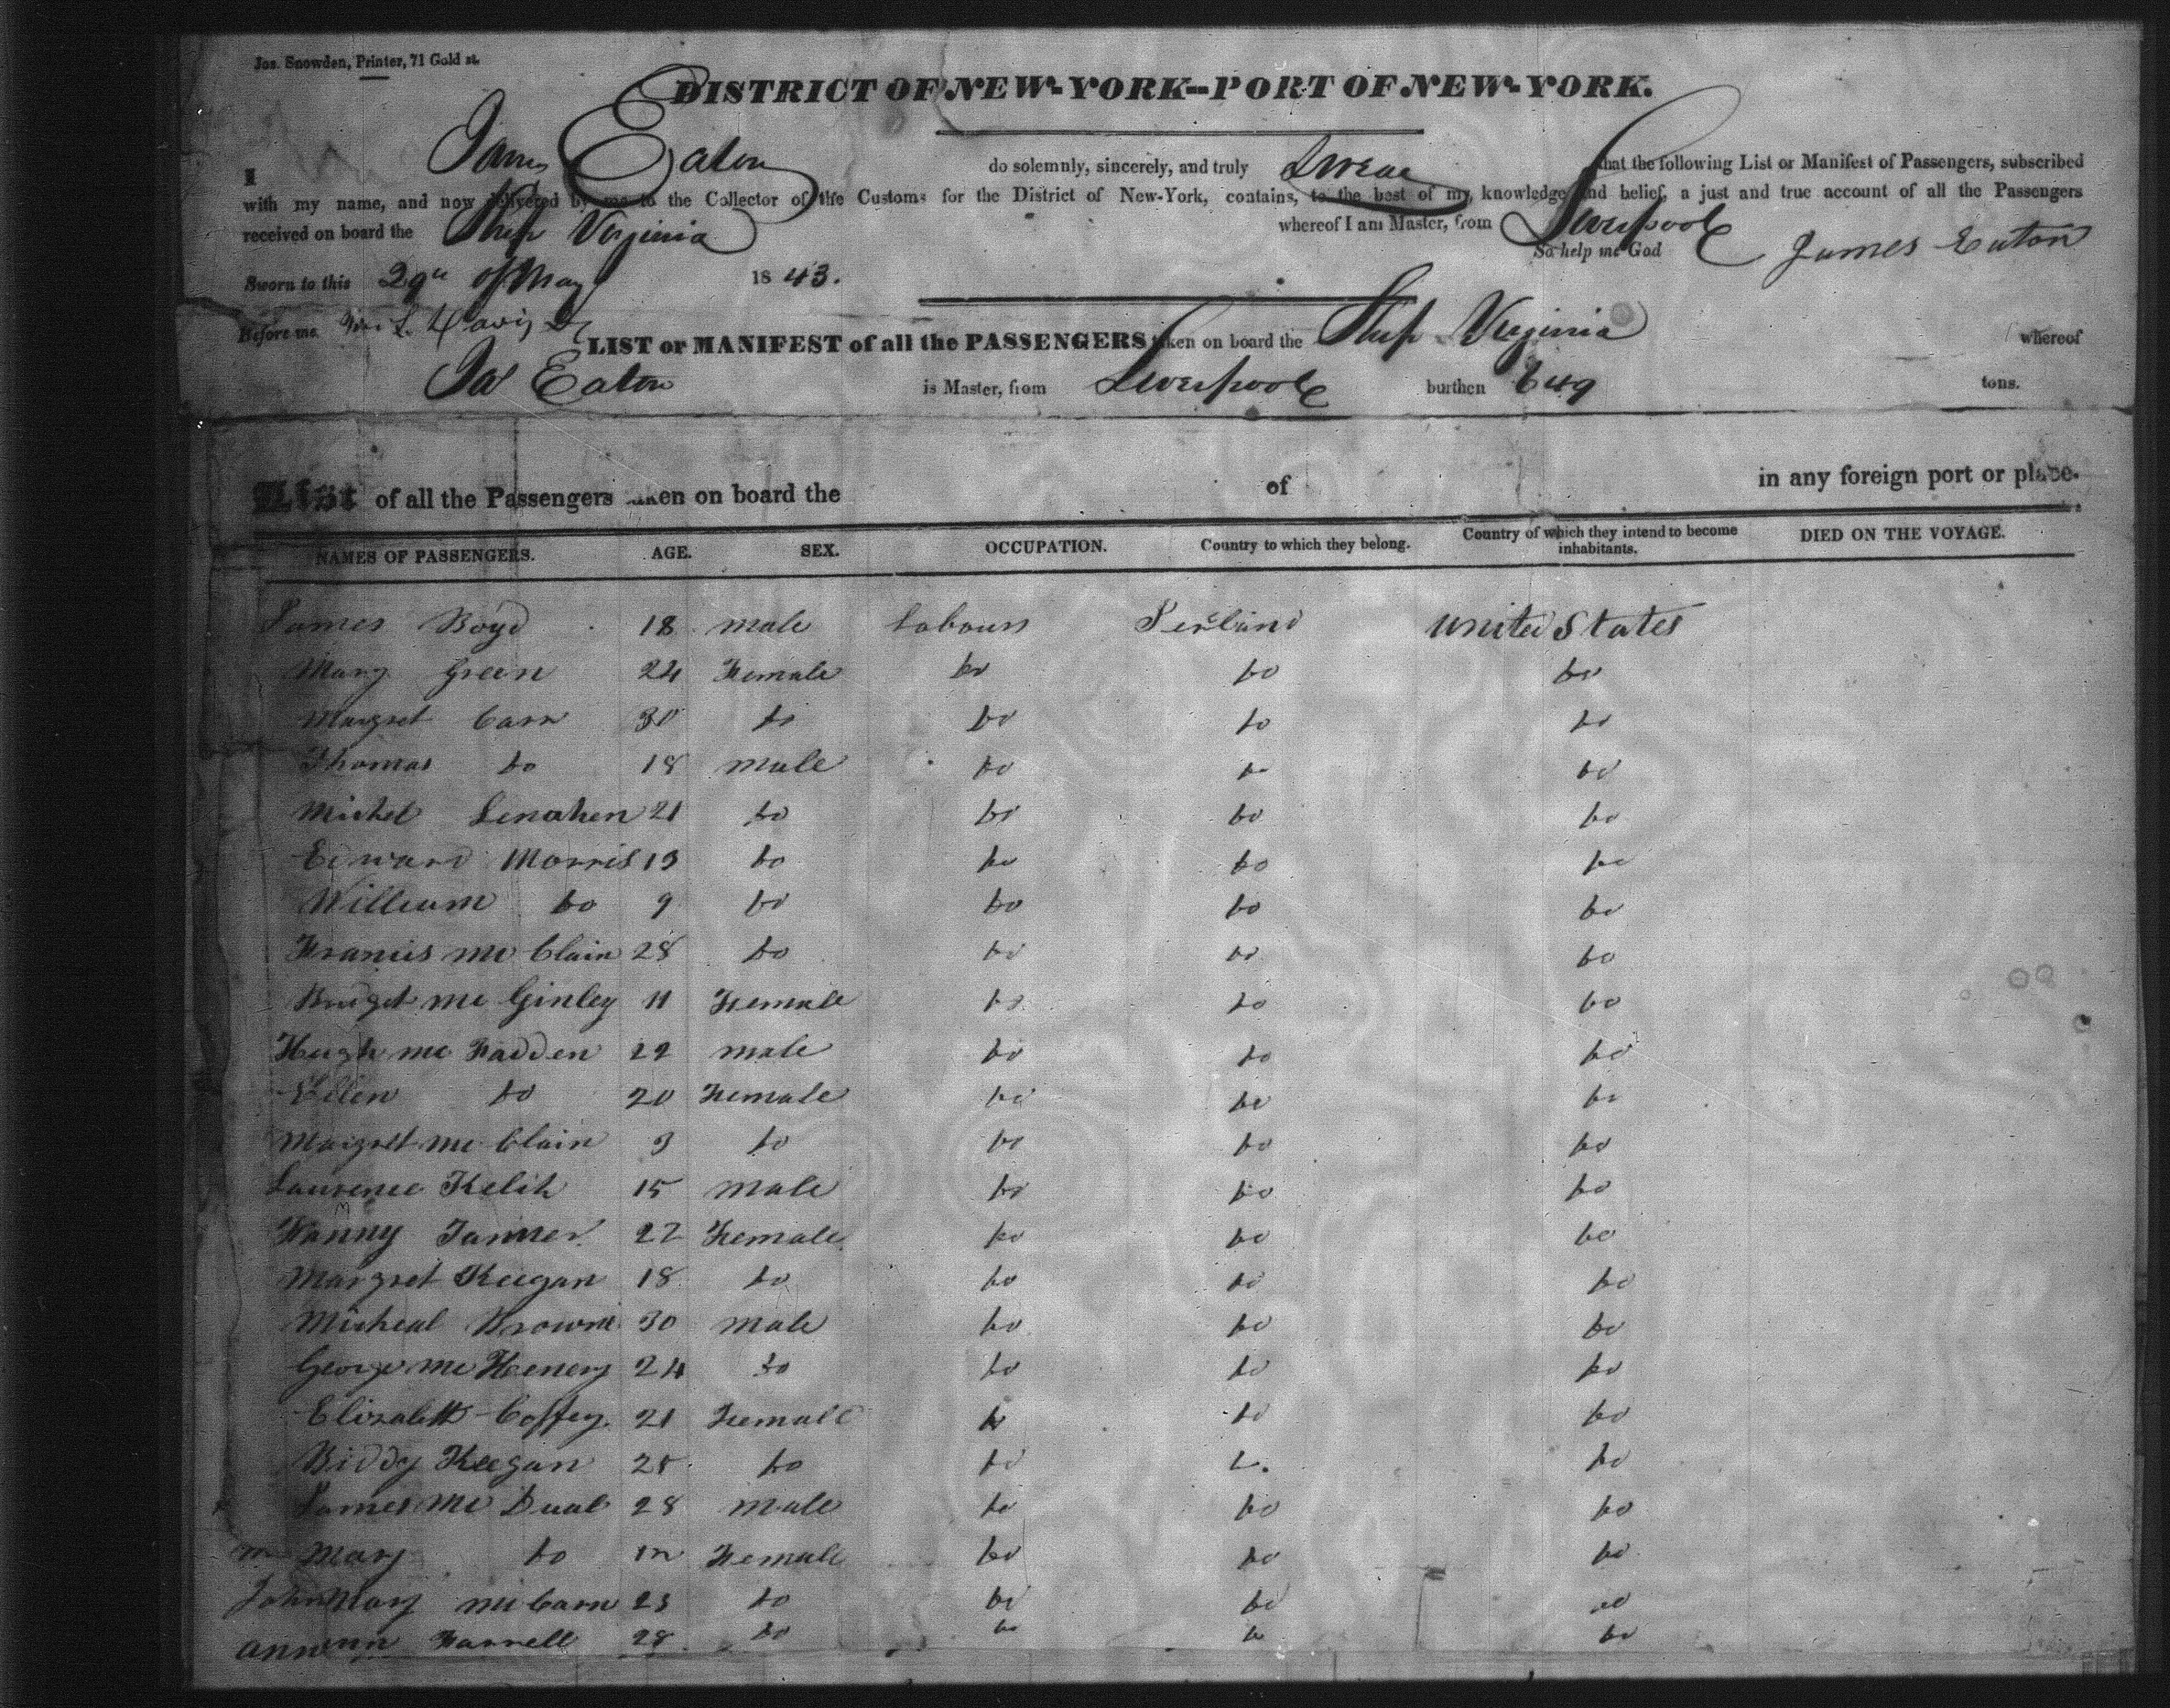 Jos. Snowden, Printer, 71 Gold st.
DISTRICT OF NEW-YORK--PORT OF NEW-YORK.
I James Eaton do solemnly, sincerely, and truly Swear that the following List or Manifest of Passengers, subscribed
with my name, and now delivered by me to the Collector of the Customs for the District of New-York, contains, to the best of my knowledge and belief, a just and true account of all the Passengers
received on board the Ship Virginia whereof I am Master, from Liverpool
So help me God James Eaton
Sworn to this 29th of May 1843.
Before me Davis
LIST or MANIFEST of all the PASSENGERS taken on board the Ship Virginia whereof
Jas Eaton is Master, from Liverpool burthen 649 tons.
List of all the Passengers taken on board the of in any foreign port or place.
NAMES OF PASSENGERS. AGE. SEX. OCCUPATION. Country to which they belong. Country of which they intend to become inhabitants. DIED ON THE VOYAGE.
James Boyd 18 male Labours Ierland United States
Mary Green 24 Female Do Do Do
Margret Carr 30 Do Do Do Do
Thomas Do 18 male Do Do Do
Michel Lenahen 21 Do Do Do Do
Edward Morris 13 Do Do Do Do
William Do 9 Do Do Do Do
Francis Mc Clain 28 Do Do Do Do
Bridget Mc Ginley 11 Female Do Do Do
Hugh Mc Fadden 22 male Do Do Do
Ellen Do 20 Female Do Do Do
Margret Mc Clain 3 Do Do Do Do
Laurence Kelih 15 male Do Do Do
Fanny Tanner 22 Female Do Do Do
Margret Keegan 18 Do Do Do Do
Micheal Browne 30 male Do Do Do
George Mc Heenery 24 Do Do Do Do
Elizabeth Coffey 21 Female Do Do Do
Biddy Keegan 25 Do Do Do Do
James Mc Dual 28 male Do Do Do
Mary Do Female Do Do Do
John Mary Mc Carn 23 Do Do Do Do
Ann Farrell 28 Do Do Do Do